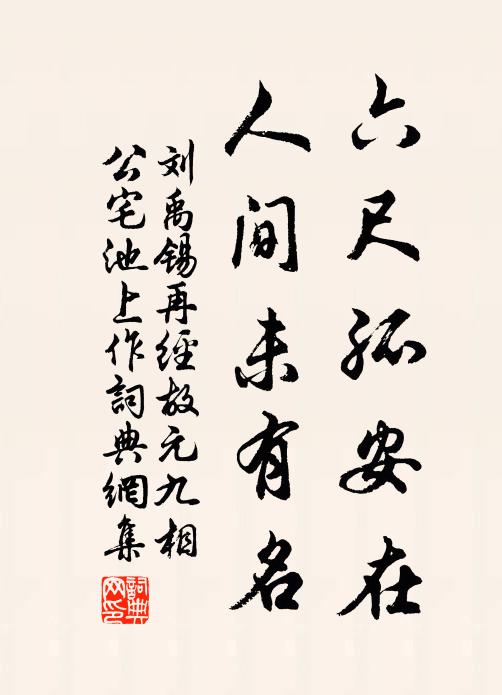 六尺孤安在
人间未有名
刘禹锡再經故元九相
公宅池上作詞典網集
詞典网印